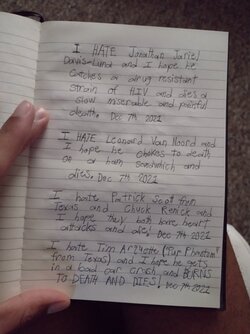 I HATE Jonathan Jariel
Davis-Lund and I hope he
catches a drug resistant
strain of HIV and dies a
slow miserable and painful
death. Dec 7th 2021
I HATE Leonard Van Noord and
I hope he chokes to death
on a ham sandwich and
dies. Dec 7th 2021
I hate Patrick Scot from
Texas and Chuck Renick and
I hope they both have heart
attacks and die! Dec 7th 2021
I hate Tim ("Fur Phantom"
from Texas) and I hope he gets
in a bad car crash and BURNS
TO DEATH AND DIES! Dec 7th 2021